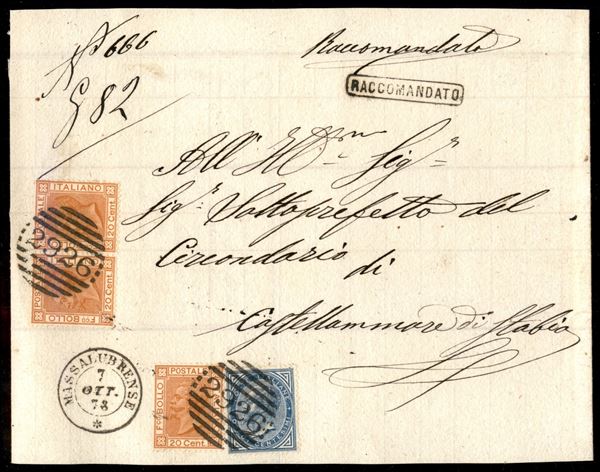 N° 666
G 82
Raccomandato
RACCOMANDATO
All' Ill.mo Sig.r
Sig.r Sottoprefetto del
Circondario
di
Castellammare di Stabia
ITALIANO
20 Cent.
2926
20 Cent.
BOLLO
MASSALUBRENSE
7
OTT.
73
POSTALE
BOLLO
20 Cent.
2926